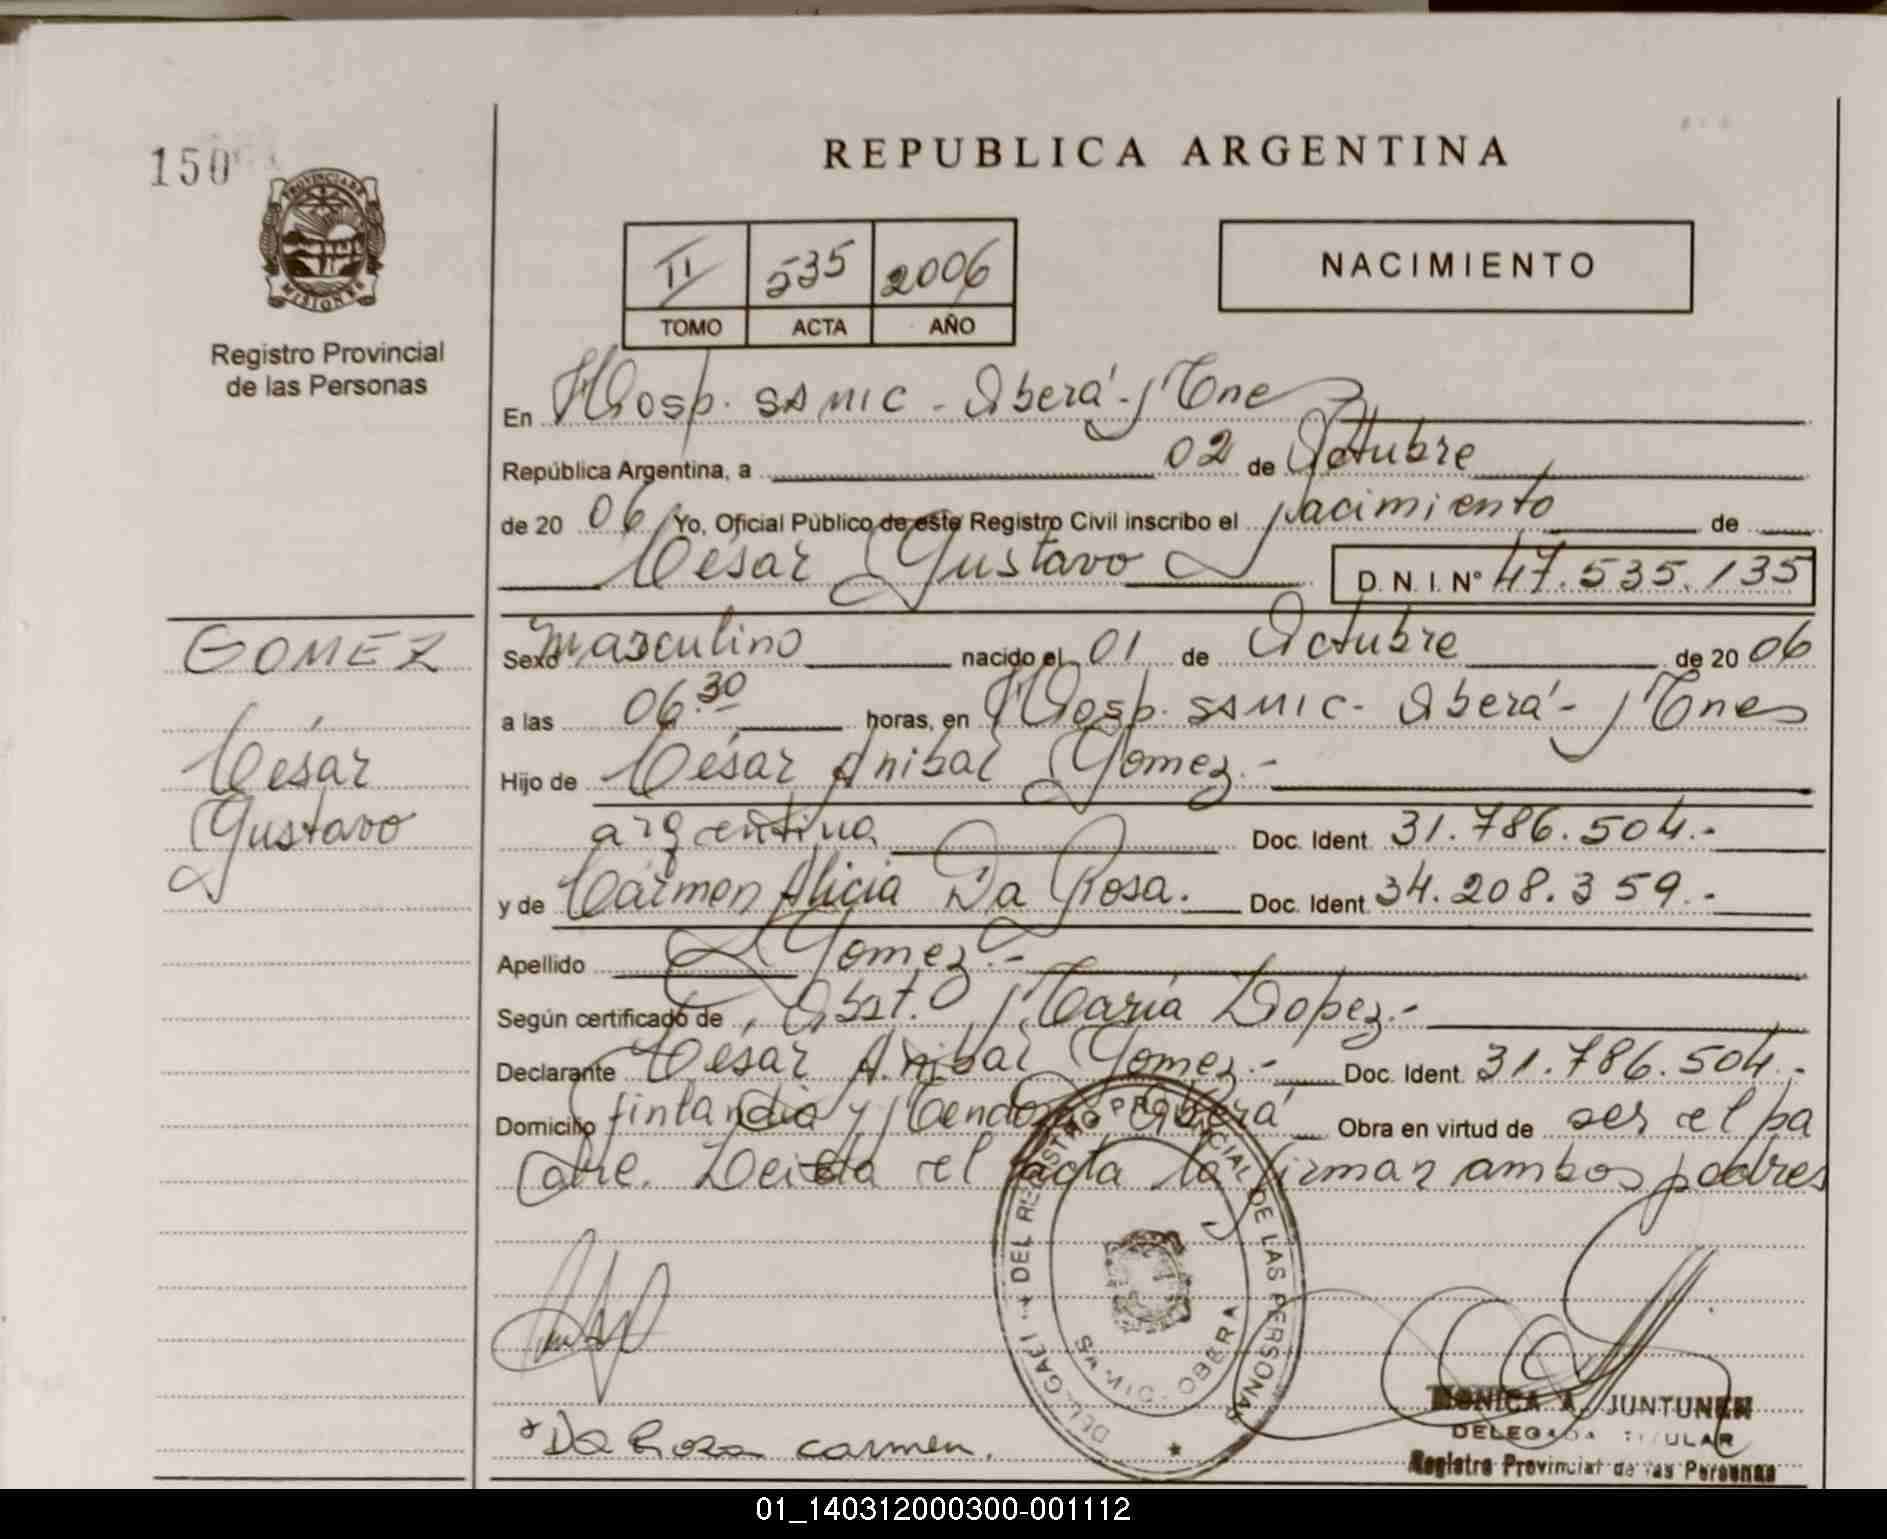 150
PROVINCIA DE
MISIONES
Registro Provincial
de las Personas
GOMEZ
César
Gustavo
REPUBLICA ARGENTINA
II 535 2006
TOMO ACTA AÑO
NACIMIENTO
En Hosp. SAMIC - Oberá - Mnes
República Argentina, a 02 de Octubre
de 20 06 Yo, Oficial Público de este Registro Civil inscribo el Nacimiento de
César Gustavo D. N. I. N° 47.535.135
Sexo Masculino nacido el 01 de Octubre de 20 06
a las 06.30 horas, en Hosp. SAMIC - Oberá - Mnes
Hijo de César Anibal Gomez.-
argentina Doc. Ident. 31.786.504.-
y de Carmen Alicia Da Rosa. Doc. Ident. 34.208.359.-
Apellido Gomez.-
Según certificado de Obst. María Lopez.-
Declarante César Anibal Gomez.- Doc. Ident. 31.786.504.-
Domicilio Finlandia y Mendoza Oberá Obra en virtud de ser el pa
dre. Leida el acta la firman ambos padres
DEL REGISTRO PROVINCIAL DE LAS PERSONAS
OBERA
Da Rosa Carmen.
MONICA A. JUNTUNEN
DELEGADA TITULAR
Registro Provincial de las Personas
01_140312000300-001112